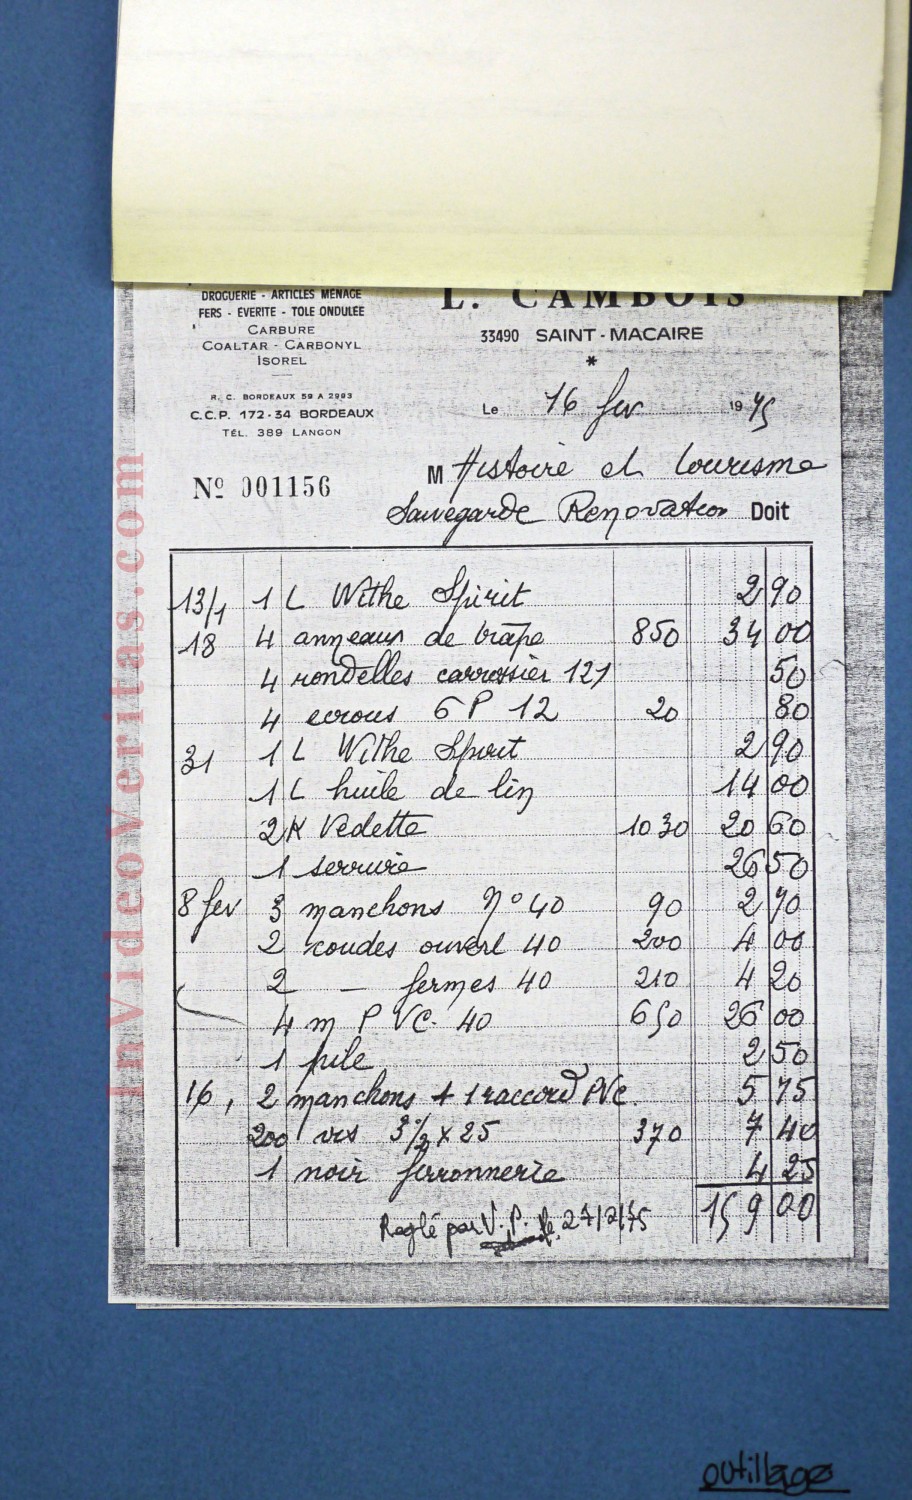 DROGUERIE - ARTICLES MENAGE
FERS - EVERITE - TOLE ONDULEE
CARBURE
COALTAR - CARBONYL
ISOREL
R. C. BORDEAUX 59 A 2993
C.C.P. 172-34 BORDEAUX
TÉL. 389 LANGON
L. CAMBOIS
33490 SAINT-MACAIRE
*
Le 16 fev 1975
Nº 001156
M Histoire et tourisme
Sauvegarde Renovation Doit
13/1 1 L Withe Spirit 2 90
18 4 anneaux de trape 850 34 00
4 rondelles carrossier 121 50
4 ecrous 6 P 12 20 80
31 1 L Withe Spirit 2 90
1 L huile de lin 14 00
2 K Vedette 1030 20 60
1 serrure 26 50
8 fev 3 manchons Nº 40 90 2 70
2 coudes ouvert 40 200 4 00
2 — fermes 40 210 4 20
4 m P VC. 40 650 26 00
1 pile 2 50
16, 2 manchons + 1 raccord PVC. 5 75
200 vis 3 1/2 x 25 370 7 40
1 noir ferronnerie 4 25
159 00
Reglé par V. P. le 27/2/75
InVideoVeritas.com
outillage